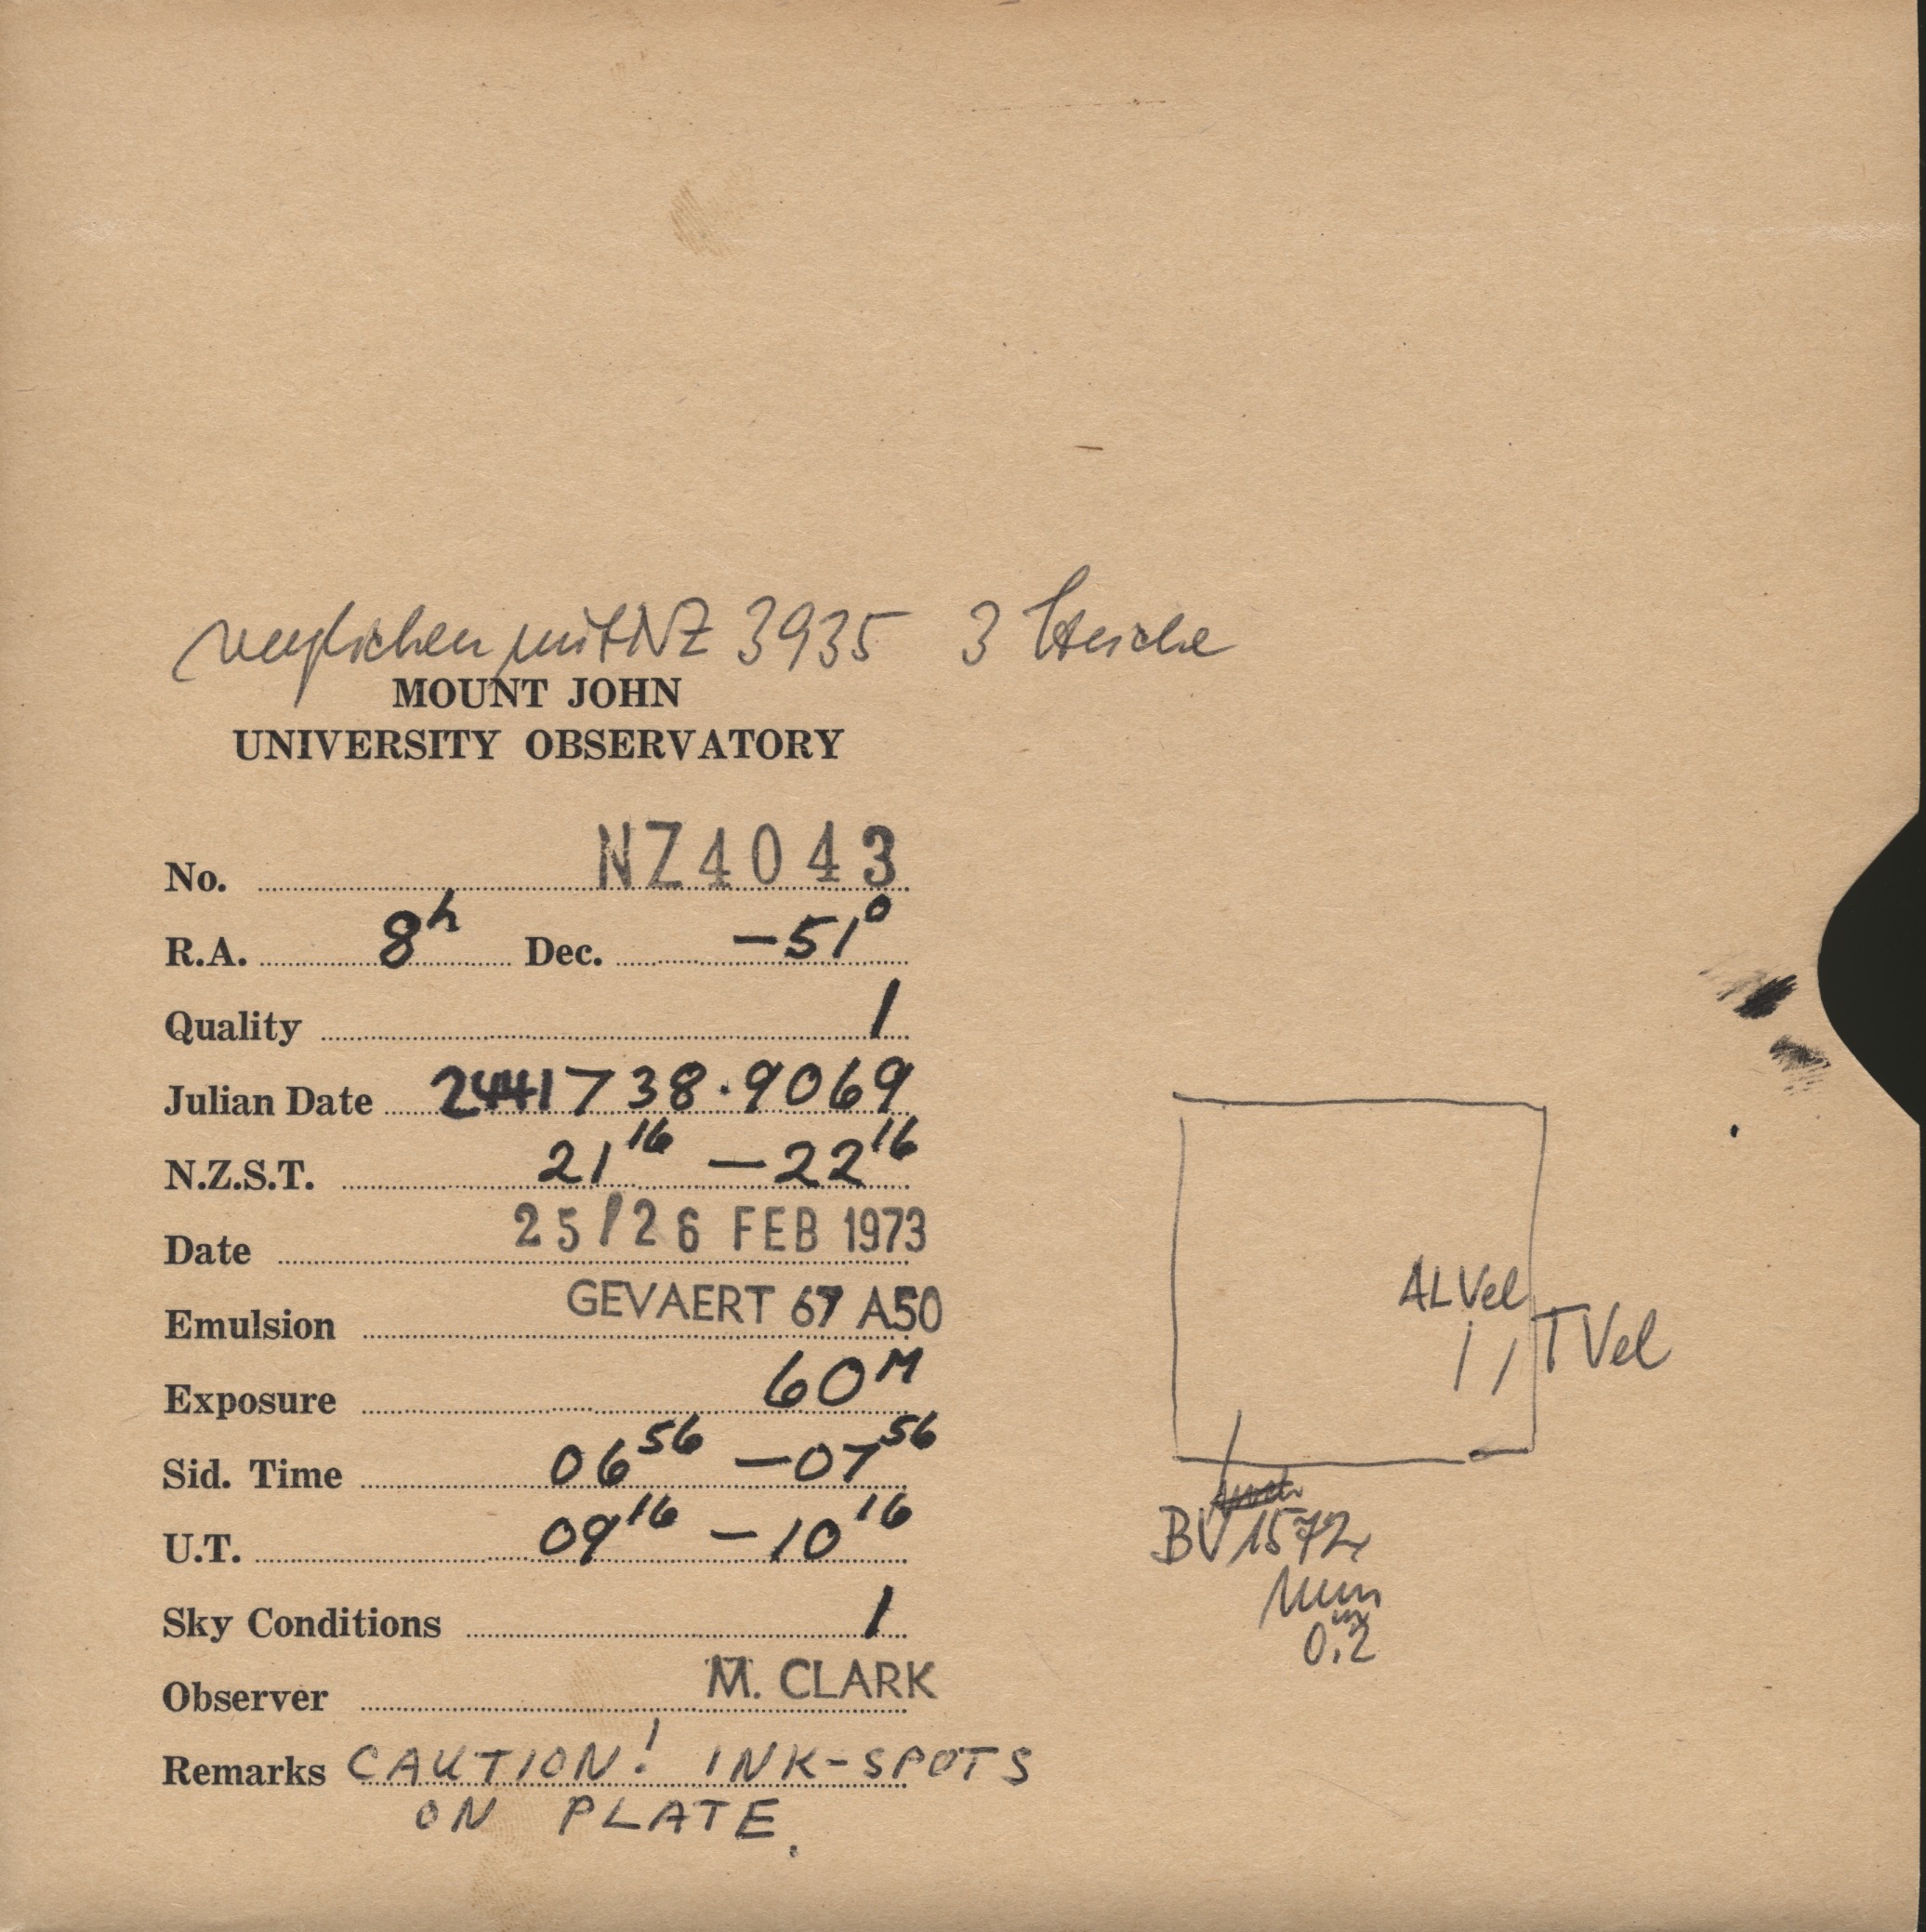 verglichen mit NZ 3935 3 Striche
MOUNT JOHN
UNIVERSITY OBSERVATORY
No. NZ4043
R.A. 8h Dec. -51°
Quality 1
Julian Date 2441738.9069
N.Z.S.T. 21 16 - 22 16
Date 25/26 FEB 1973
Emulsion GEVAERT 67 A50
Exposure 60M
Sid. Time 06 56 - 07 56
U.T. 09 16 - 10 16
Sky Conditions 1
Observer M. CLARK
Remarks CAUTION! INK-SPOTS
ON PLATE.
AL Vel
T Vel
BV 1572
Min
0.m2